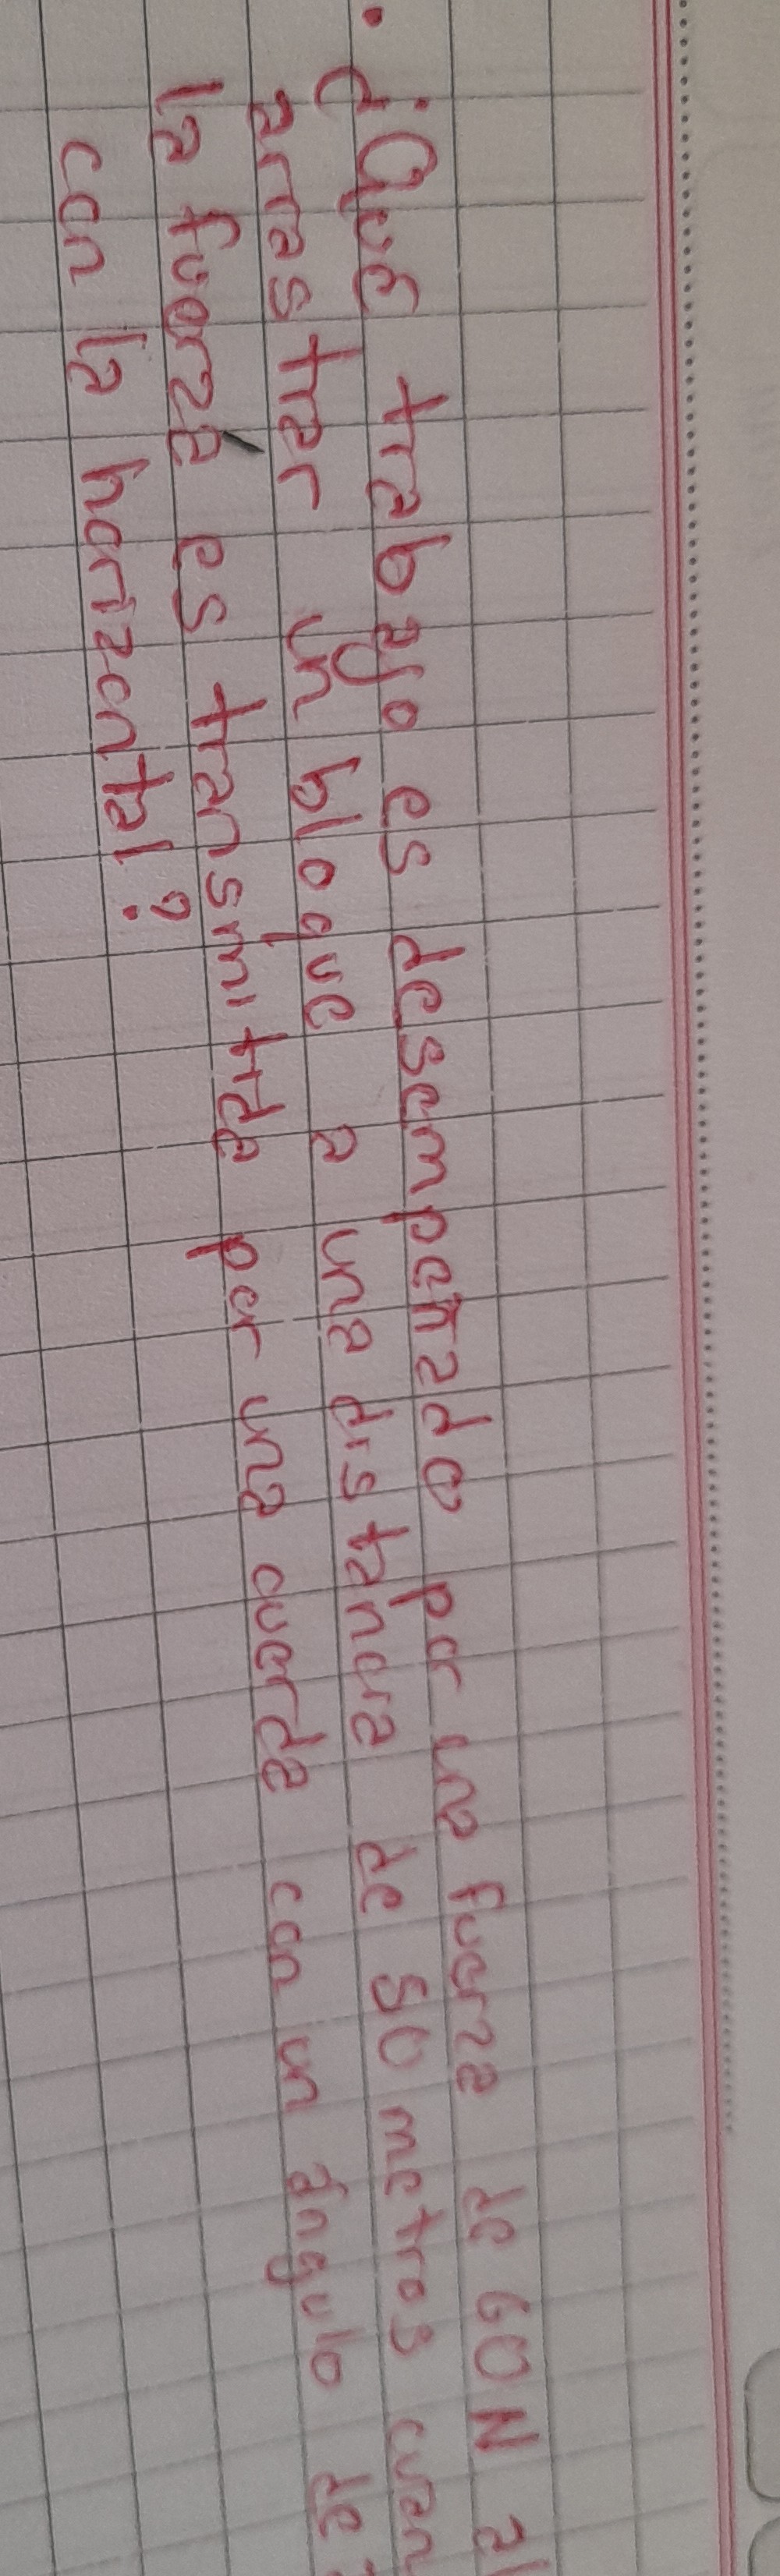 • ¿Qué trabajo es desempeñado por una fuerza de 60N al
arrastrar un bloque a una distancia de 50 metros cuan
la fuerza es transmitida por una cuerda con un ángulo de
con la horizontal?